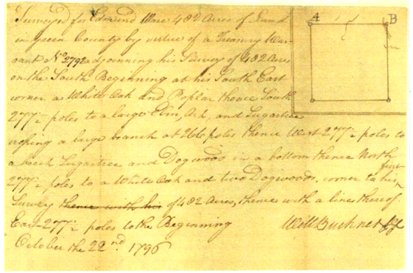 Surveyed for Edmund Ware 482 Acres of Land
in Green County by virtue of a Treasury War-
rant No 2792 adjoining his Survey of 482 Acres
on the South Beginning at his South East
corner a White Oak and Poplar thence South
277½ poles to a large Elm, Ash, and Sugartree
crossing a large branch at 266 poles thence West 277½ poles to
a beech Sugartree and Dogwood in a bottom thence North
277½ poles to a White Oak and two Dogwoods corner to his first
Survey thence with his of 482 Acres, thence with a line thereof
East 277½ poles to the Beginning
October the 22nd 1796
Will Buckner
A
B